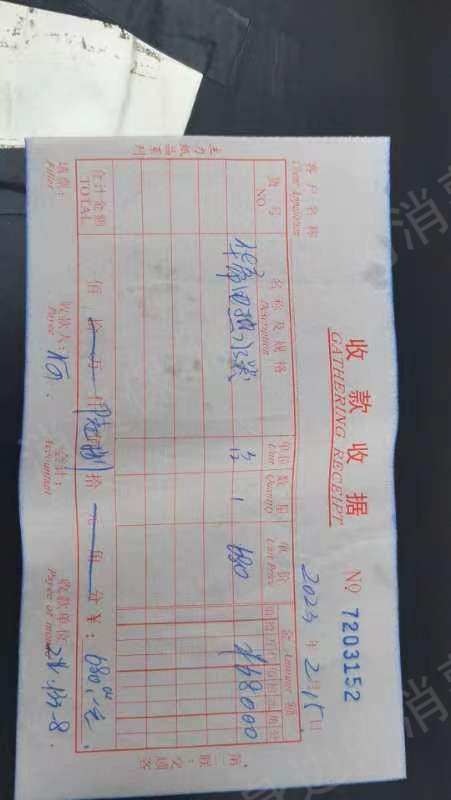 收款收据
GATHERING RECEIPT
№ 7203152
2023年2月15日
客户名称
Client Appellation
货号
NO.
名称及规格
Description
单位
Unit
数量
Quantity
单价
Unit Price
金 Amount 额
佰 拾 万 千 百 十 元 角 分
1 680 ¥68000
合计金额
TOTAL
佰 拾 万 仟 陆佰捌拾 元 角 分 ¥: 680.00元
填票:
Filler:
收款人:
Payee
会计:
Accountant
收款单位
主力纸品系列
第二联:交顾客
消